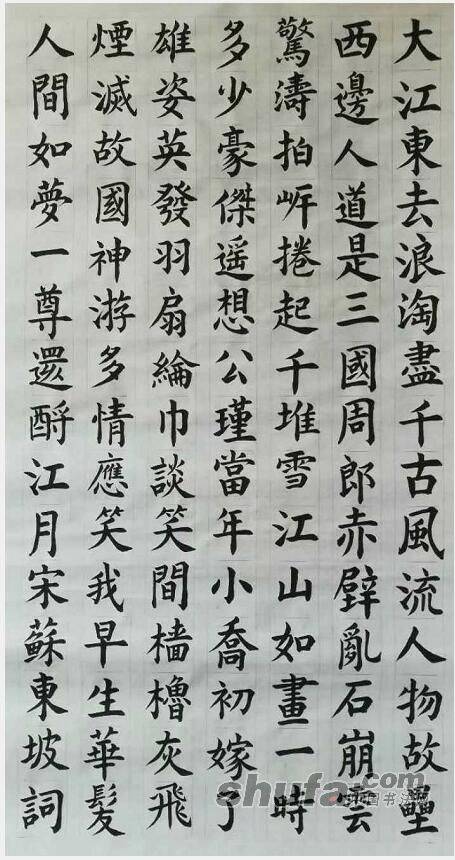 大江東去浪淘盡千古風流人物故壘
西邊人道是三國周郎赤壁亂石崩雲
驚濤拍岸捲起千堆雪江山如畫一時
多少豪傑遥想公瑾當年小喬初嫁了
雄姿英發羽扇綸巾談笑間檣櫓灰飛
煙滅故國神游多情應笑我早生華髮
人間如夢一尊還酹江月宋蘇東坡詞
shufa.com
中国书法网